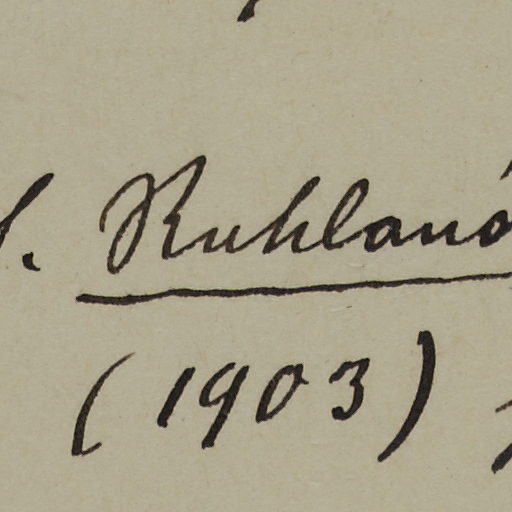 . Ruhland
(1903)